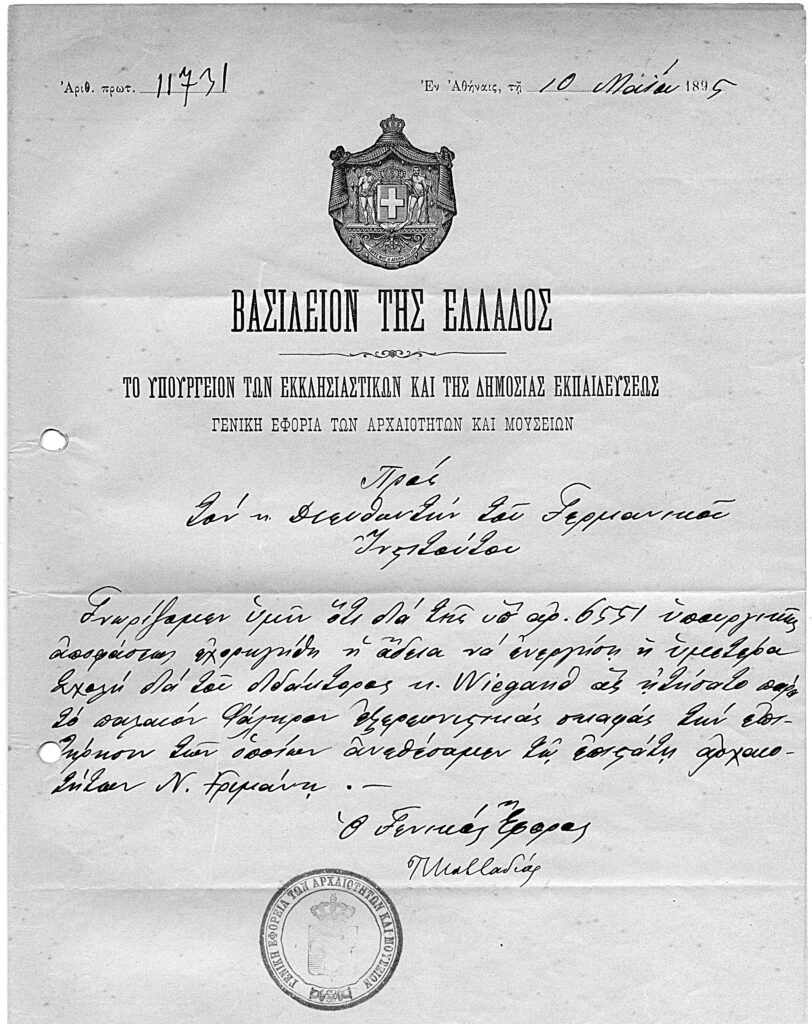 Ἀριθ. πρωτ. 11731
Ἐν Ἀθήναις, τῇ 10 Μαΐου 1895
ΒΑΣΙΛΕΙΟΝ ΤΗΣ ΕΛΛΑΔΟΣ
ΤΟ ΥΠΟΥΡΓΕΙΟΝ ΤΩΝ ΕΚΚΛΗΣΙΑΣΤΙΚΩΝ ΚΑΙ ΤΗΣ ΔΗΜΟΣΙΑΣ ΕΚΠΑΙΔΕΥΣΕΩΣ
ΓΕΝΙΚΗ ΕΦΟΡΙΑ ΤΩΝ ΑΡΧΑΙΟΤΗΤΩΝ ΚΑΙ ΜΟΥΣΕΙΩΝ
Πρός
τόν κ. Διευθυντήν τοῦ Γερμανικοῦ
Ἰνστιτούτου
Γνωρίζομεν ὑμῖν ὅτι διά τῆς ὑπ' ἀρ. 6551 ὑπουργικῆς
ἀποφάσεως ἐχορηγήθη ἡ ἄδεια νά ἐνεργήσῃ ἡ ὑμετέρα
Σχολή διά τοῦ διδάκτορος κ. Wiegand ἅς ᾐτήσατο παρά
τό παλαιόν Φάληρον ἐξερευνητικάς σκαφάς τήν ἐπι-
τήρησιν τῶν ὁποίων ἀνεθέσαμεν τῷ ἐπιστάτῃ ἀρχαιο-
τήτων Ν.
Ὁ Γενικός Ἔφορος
Π Καββαδίας
ΓΕΝΙΚΗ ΕΦΟΡΕΙΑ ΤΩΝ ΑΡΧΑΙΟΤΗΤΩΝ ΚΑΙ ΜΟΥΣΕΙΩΝ